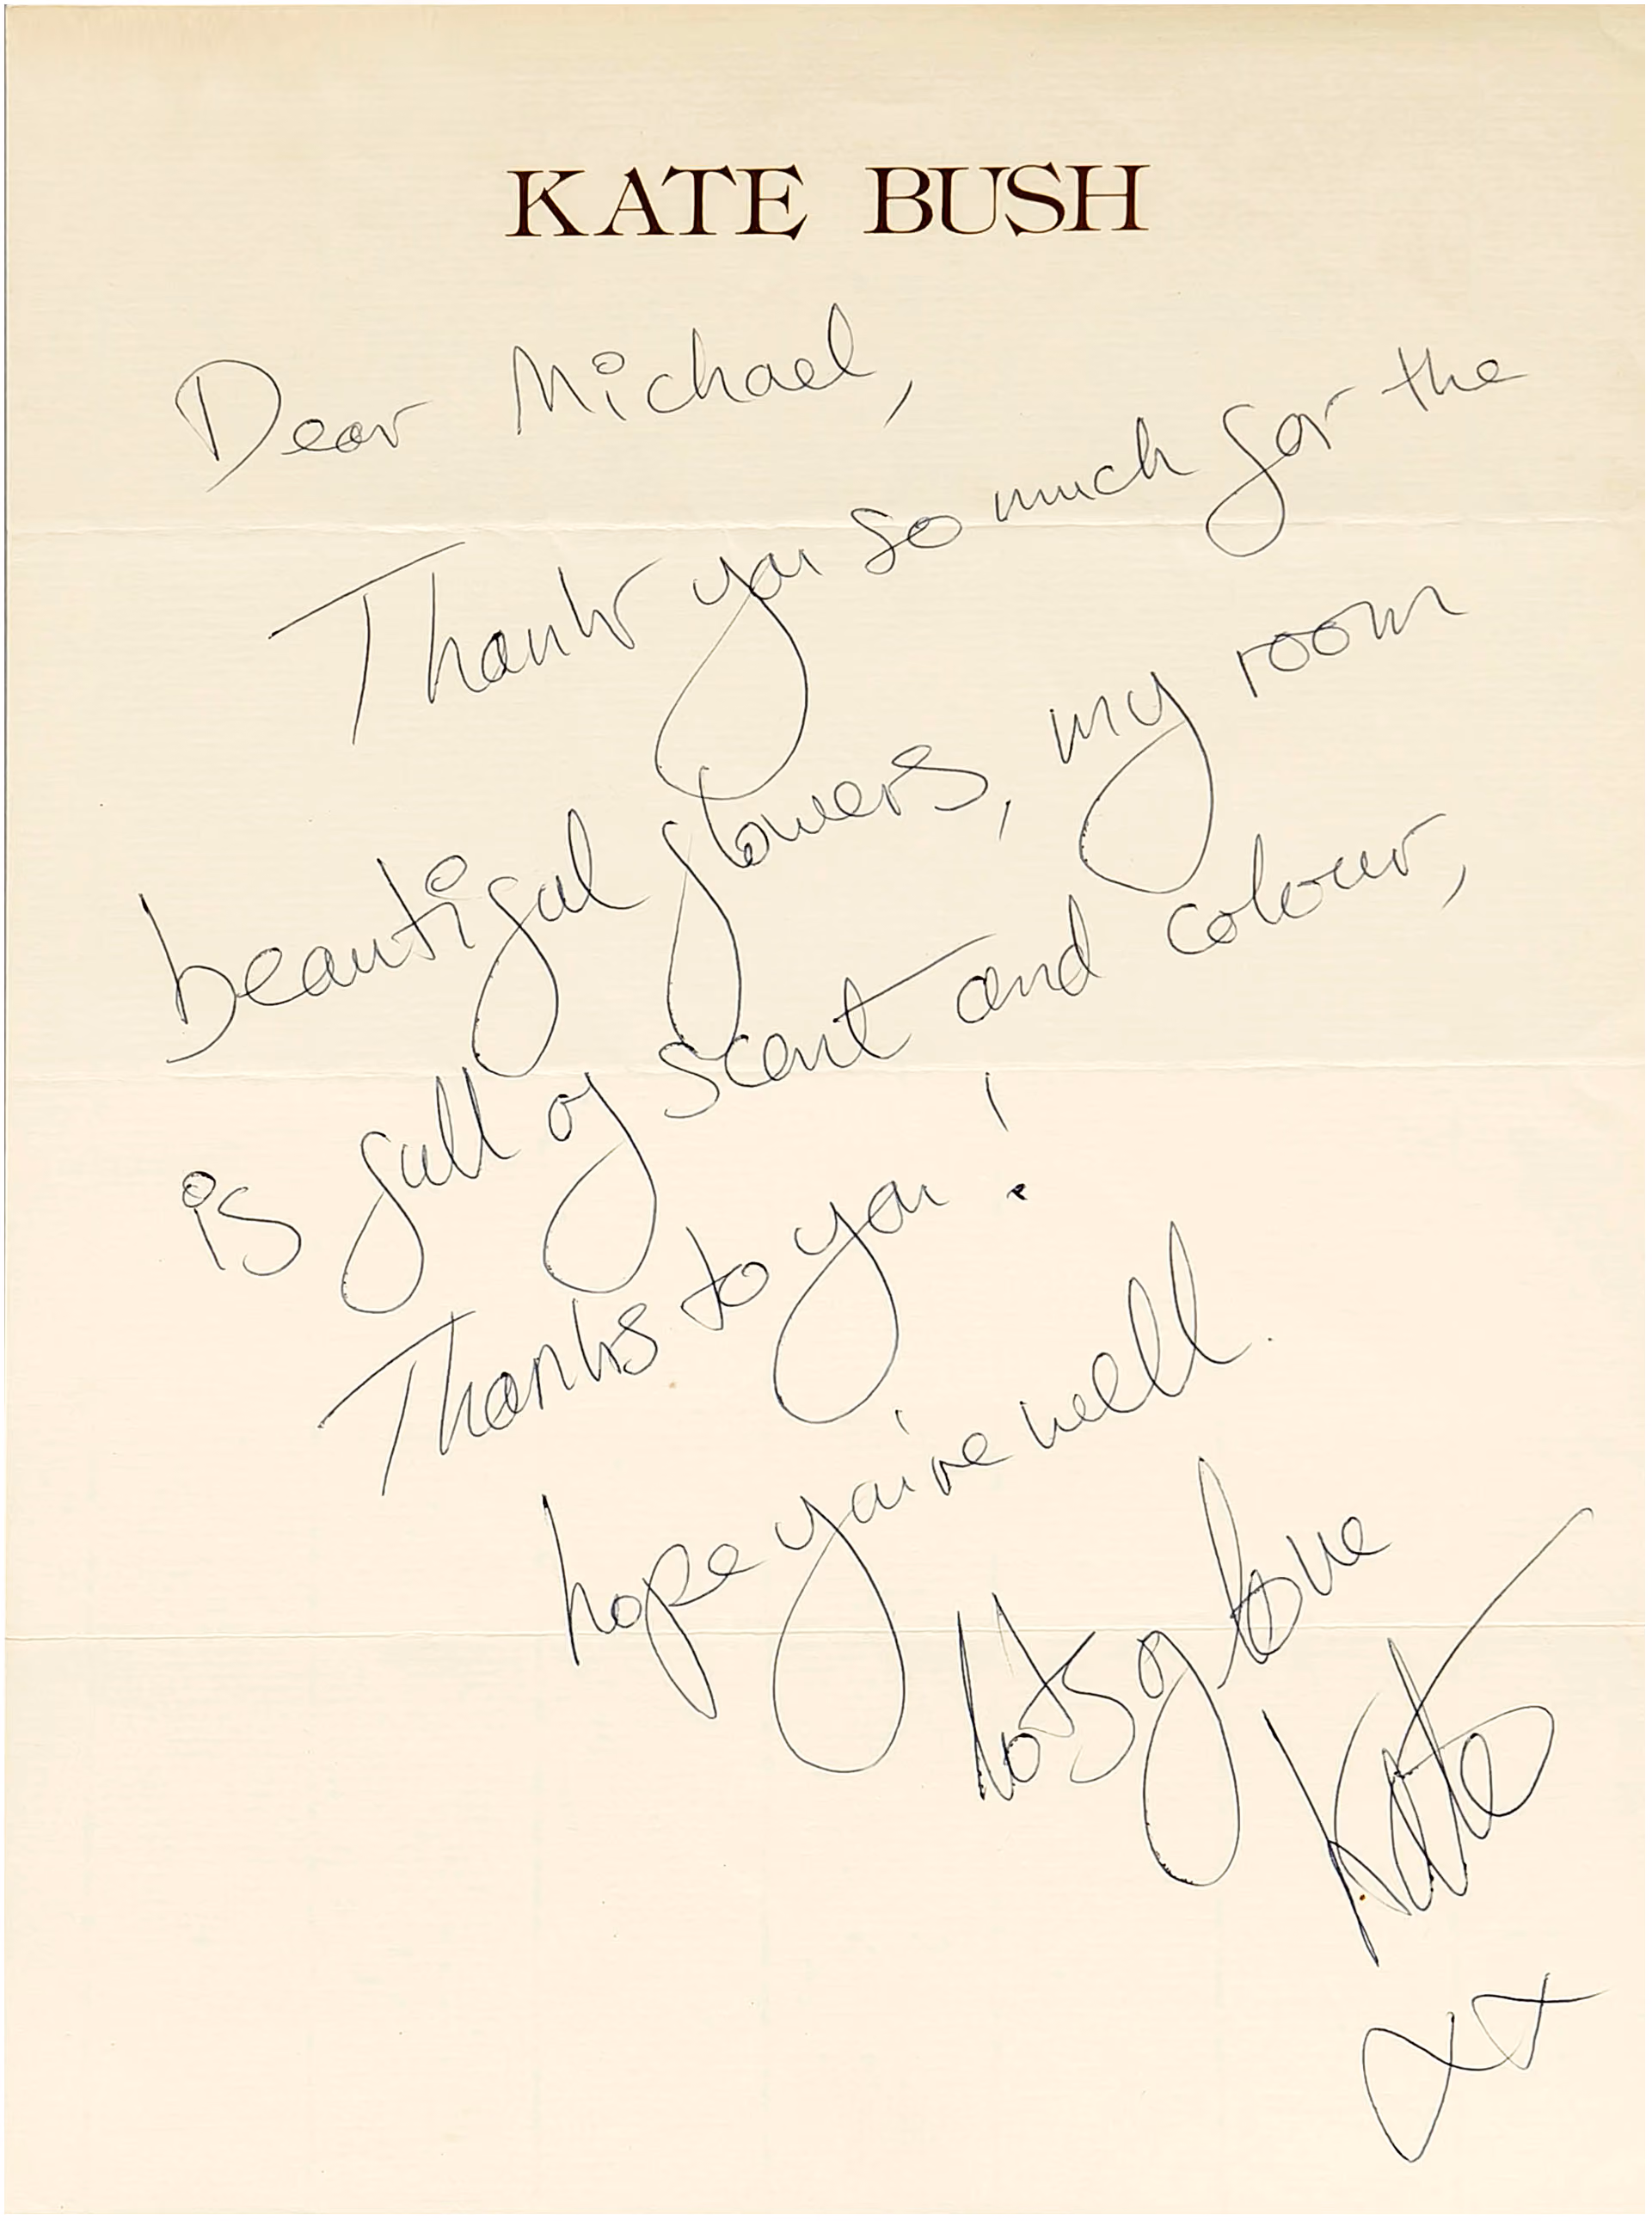 KATE BUSH
Dear Michael,
Thank you so much for the
beautiful flowers, my room
is full of scent and colour,
Thanks to you!
hope you're well.
lots of love
Kate
xx